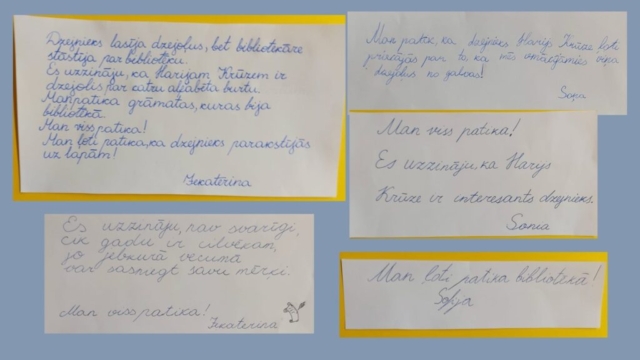 Dzejnieks lasīja dzejoļus, bet bibliotekāre
stāstīja par bibliotēku.
Es uzzināju, ka Harijam Krūzem ir
dzejolis par katru alfabēta burtu.
Man patika grāmatas, kuras bija
bibliotēkā.
Man viss patika!
Man ļoti patika, ka dzejnieks parakstījās
uz lapām!
Jekaterina
Man patik, ka dzejnieks Harijs Krūze ļoti
priecājās par to, ka mēs iemācījāmies viņa
dzejoļus no galvas!
Soņa
Man viss patika!
Es uzzināju, ka Harijs
Krūze ir interesants dzejnieks.
Sonia
Es uzzināju, nav svarīgi,
cik gadu ir cilvēkam,
jo jebkurā vecumā
var sasniegt savu mērķi.
Man viss patika!
Jekaterina
Man ļoti patika bibliotēkā!
Sofja